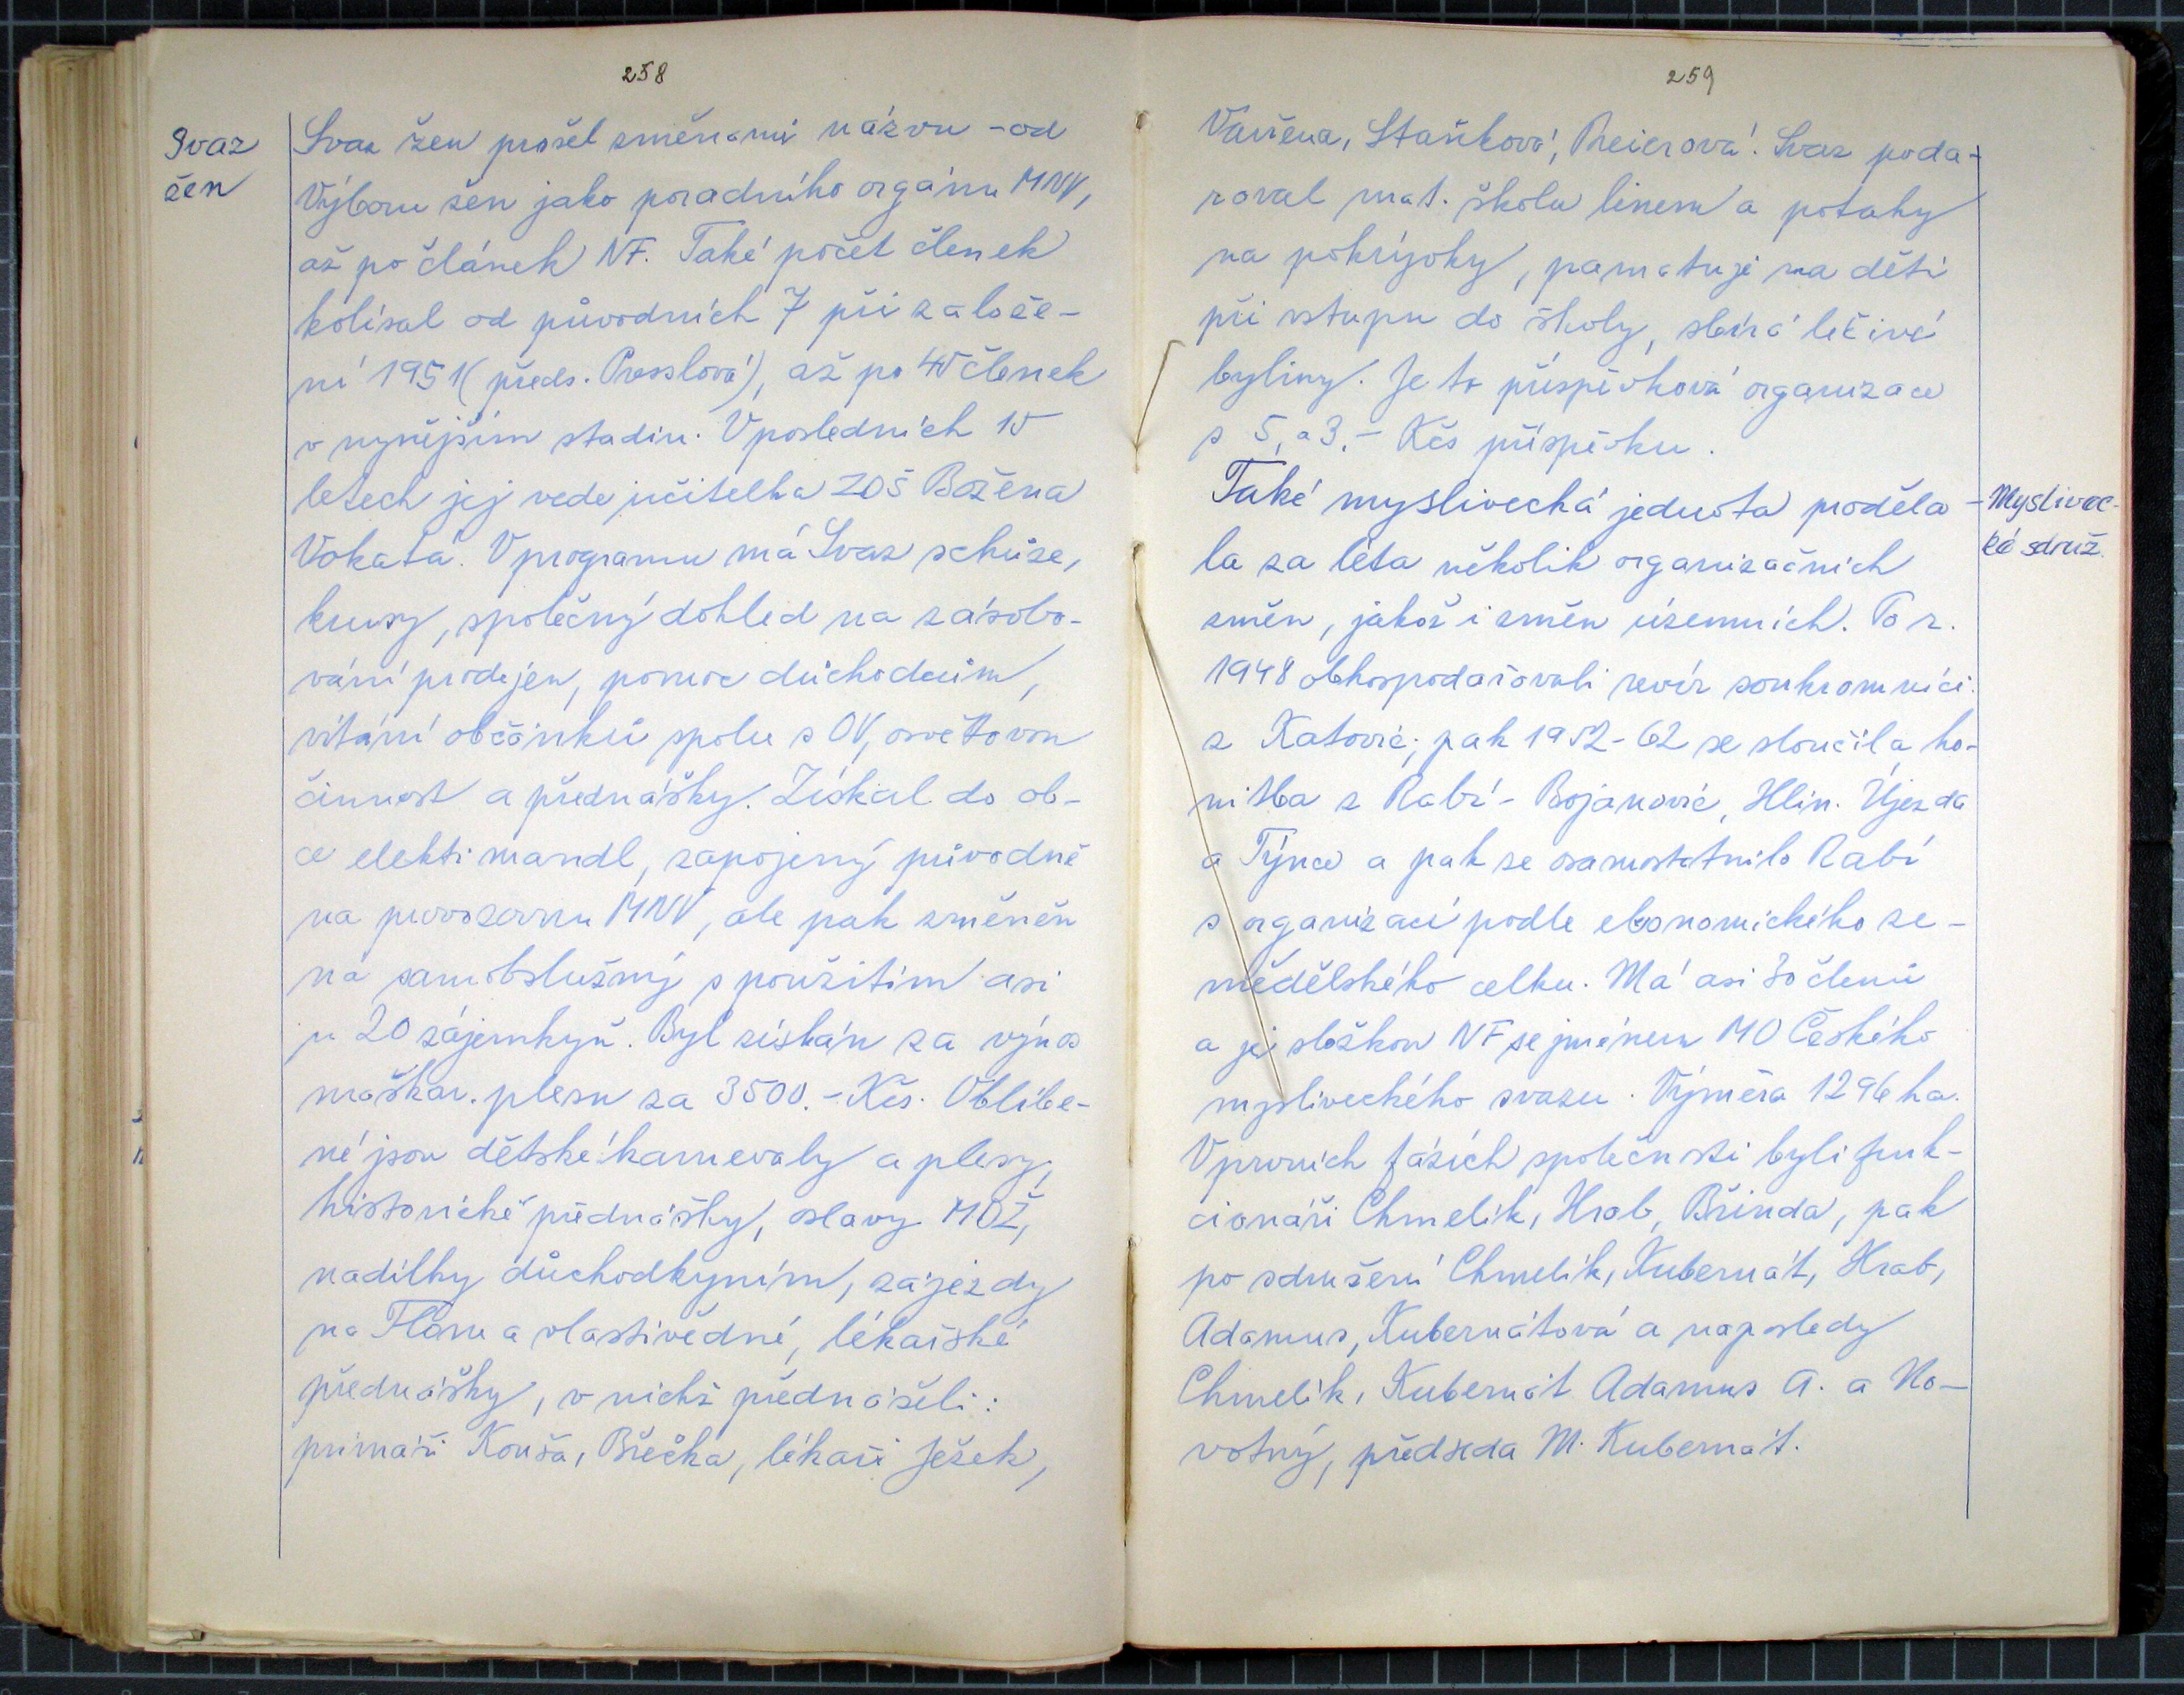 258
Svaz
žen
Svaz žen prošel změnami názvu - od
Výboru žen jako poradního orgánu MNV,
až po článek NF. Také počet členek
kolísal od původních 7 při založe-
ní 1951 (předs. Presslová), až po 40 členek
v nynějším stadiu. V posledních 10
letech jej vede učitelka ZDŠ Božena
Vokatá. V programu má Svaz schůze,
kursy, společný dohled na zásobo-
vání prodejen, pomoc důchodcům,
vítání občánků spolu s OV, osvětovou
činnost a přednášky. Získal do ob-
ce elektr. mandl, zapojený původně
na provozovnu MNV, ale pak změněn
na samoobslužný s použitím asi
u 20 zájemkyň. Byl získán za výnos
maškar. plesu za 3500.- Kčs. Oblíbe-
né jsou dětské karnevaly a plesy,
historické přednášky, oslavy MDŽ,
nadílky důchodkyním, zájezdy
na Floru a vlastivědné, lékařské
přednášky, v nichž přednášeli:
primáři Kouša, Břečka, lékaři Ježek,
259
Vavřena, Staňková, Preierová. Svaz poda-
roval mat. školu linem a potahy
na pokrývky, pamatuje na děti
při vstupu do školy, sbírá léčivé
byliny. Je to příspěvková organizace
s 5, a 3.- Kčs příspěvku.
Také myslivecká jednota proděla-
Myslivec-
ké sdruž.
la za léta několik organizačních
změn, jakož i změn územních. Po r.
1948 obhospodařovali revír soukromníci
z Katovic; pak 1952-62 se sloučila ho-
nitba z Rabí - Bojanovic, Hlin. Újezda
a Týnce a pak se osamostatnilo Rabí
s organizací podle ekonomického ze-
mědělského celku. Má asi 30 členů
a je složkou NF se jménem MO Českého
mysliveckého svazu. Výměra 1296 ha.
V prvních fázích společnosti byli funk-
cionáři Chmelík, Hrab, Břinda, pak
po sdružení Chmelík, Kubernát, Hrab,
Adamus, Kubernátová a naposledy
Chmelík, Kubernát Adamus A. a No-
votný, předseda M. Kubernát.